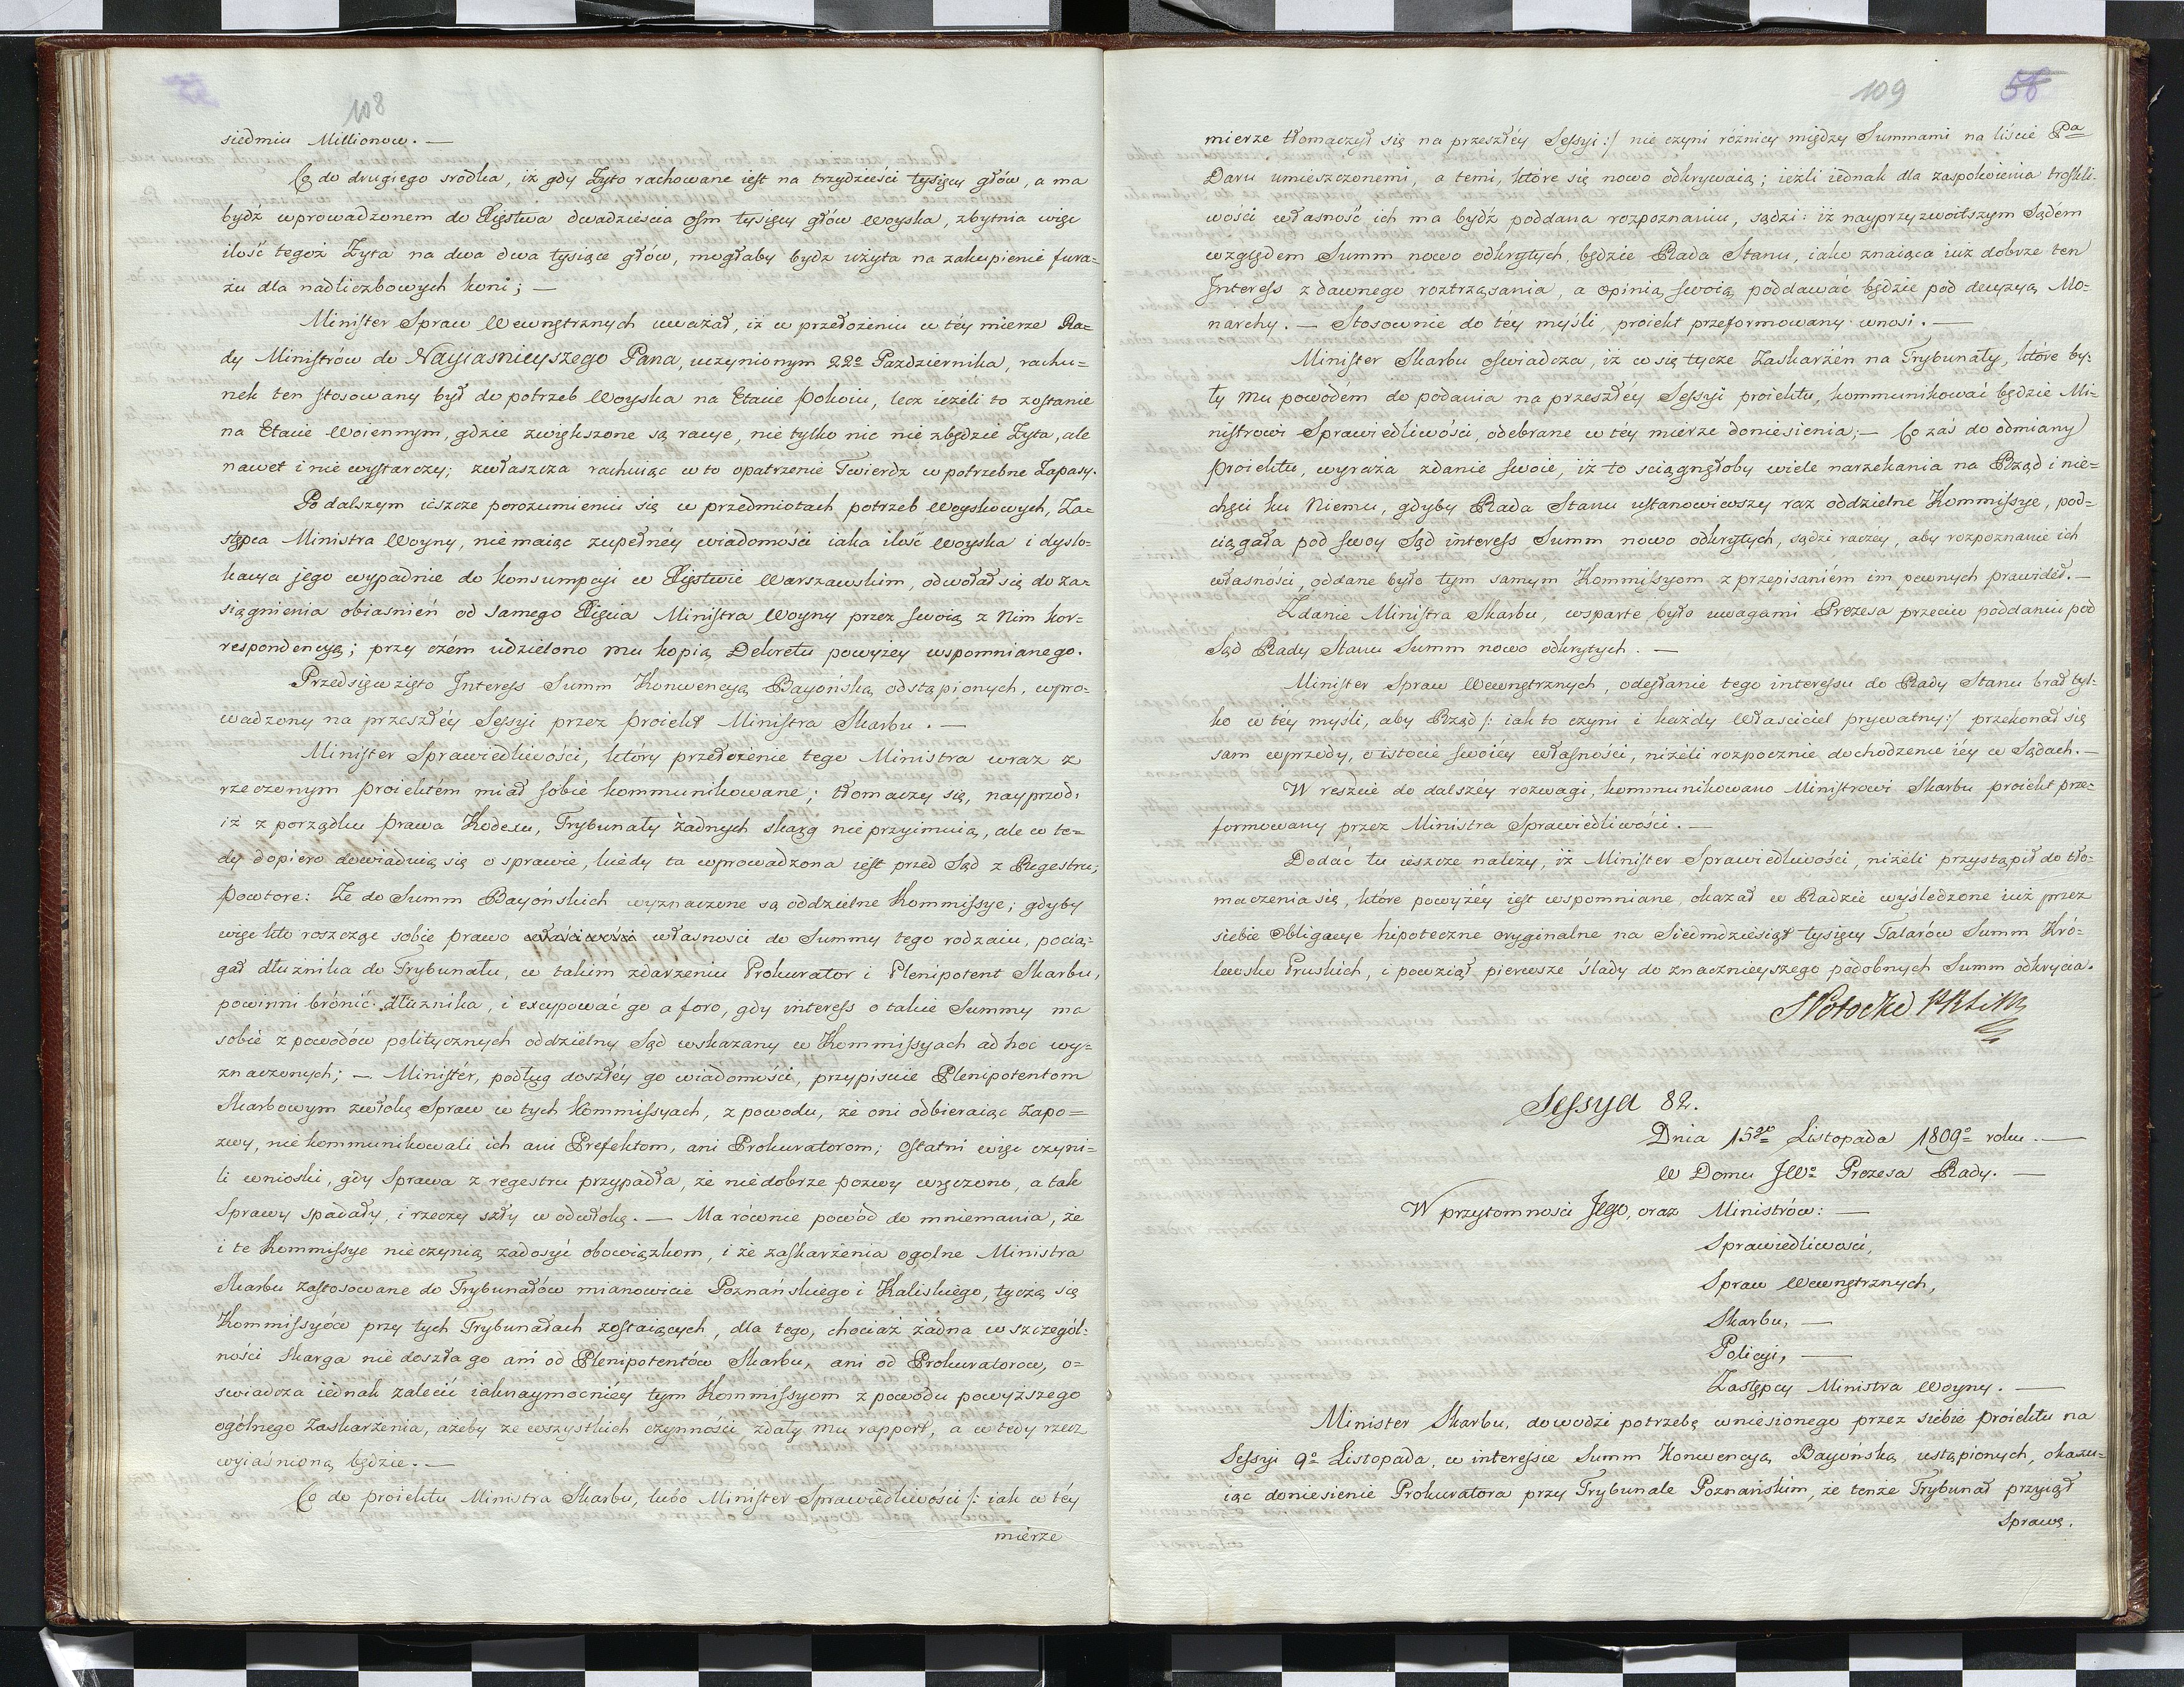 108
siedmiu Millionow. —
Co do drugiego srodka, iż gdy Żyto rachowane iest na trzydzieści tysięcy głów, a ma
bydź wprowadzonem do Xięstwa dwadzieścia ośm tysięcy głów Woyska, zbytnia więc
ilość tegoż Żyta na dwa dwa tysiące głów, mogłaby bydz użyta na zakupienie fura=
żu dla nadliczbowych koni; —
Minister Spraw Wewnętrznych uważał, iż w przełożeniu w téy mierze Ra=
dy Ministrów do Nayiasnieyszego Pana, uczynionym 22º Pazdziernika, rachu=
nek ten stosowany był do potrzeb Woyska na Etacie pokoiu, lecz ieżeli to zostanie
na Etacie Woiennym, gdzie zwiększone są racye, nie tylko nic nie zbędzie Żyta, ale
nawet i nie wystarczy; zwłaszcza rachuiąc w to opatrzenie Twierdz w potrzebne Zapasy.
Po dalszym ieszcze porozumieniu się w przedmiotach potrzeb Woyskowych, Za=
stępca Ministra Woyny, nie maiąc zupełnéy wiadomości iaka ilość Woyska i dyslo=
kacya jego wypadnie do konsumpcyi w Xięstwie Warszawskim, odwołał się do za=
siągnienia obiasnień od samego Xięcia Ministra Woyny przez swoią z Nim kor=
respondencyą; przy czém udzielono mu kopią Dekretu powyżey wspomnianego.
Przedsięwzięto Interess Summ Konwencyą Bayońską odstąpionych, wpro=
wadzony na przeszłéy Sessyi przez proiekt Ministra Skarbu. —
Minister Sprawiedliwości, który przełożenie tego Ministra wraz z
rzeczonym proiektém miał sobie kommunikowane; tłomaczy się, nayprzód:
iż z porządku prawa Kodexu, Trybunały żadnych skarg nie przyimuią, ale w te=
dy dopiero dowiaduią się o sprawie, kiedy ta wprowadzona iest przed Sąd z Regestru;
powtore: Że do Summ Bayońskich wyznaczone są oddzielne Kommissye; gdyby
więc kto roszcząc sobie prawo właściwości własnosci do Summy tego rodzaiu, pocią=
gał dłużnika do Trybunału, w takim zdarzeniu Prokurator i Plenipotent Skarbu,
powinni brónić dłuznika, i excypować go a foro, gdy interess o takie Summy ma
sobie z powodów politycznych oddzielny Sąd wskazany w Kommissyach ad hoc wy=
znaczonych; — Ministér, podług doszłéy go wiadomości, przypisuie Plenipotentom
Skarbowym zwłokę Spraw w tych Kommissyach, z powodu, że oni odbieraiąc Zapo=
zwy, nie kommunikowali ich ani Prefektom, ani Prokuratorom; Ostatni więc czyni=
li wnioski, gdy Sprawa z regestru przypadła, że niedobrze pozwy wręczono, a tak
Sprawy spadały, i rzeczy szły w odwłokę. — Ma równie powód do mniemania, że
i te Kommissye nieczynią zadosyć obowiązkom, i że zaskarżenia ogolne Ministra
Skarbu zastosowane do Trybunałów mianowicie Poznańskiego i Kaliskiego, tyczą się
Kommissyów przy tych Trybunałach zostaiących, dla tego, chociaż żadna w szczegól=
ności Skarga nie doszła go ani od Plenipotentów Skarbu, ani od Prokuratorow, o=
swiadcza iednak zalecić iaknaymocniéy tym Kommissyom z powodu powyższego
ogólnego Zaskarżenia, ażeby ze wszystkich czynności zdały mu rapport, a w tedy rzecz
wyiaśnioną będzie. —
Co do proiektu Ministra Skarbu, lubo Minister Sprawiedliwości /: iak w téy
mierze
109
58
mierze tłomaczył się na przeszłéy Sessyi :/ nie czyni różnicy między Summami na liście Pa
Daru umieszczonemi, a temi, które się nowo odkrywaią; ieżli iednak dla zaspokoienia troskli=
wości własność ich ma bydź poddana rozpoznaniu, sądzi: iż nayprzyzwoitszym Sądem
względem Summ nowo odkrytych, będzie Rada Stanu, iako znaiąca iuż dobrze ten
Interess z dawnego roztrząsania, a opinią swoią poddawać będzie pod decyzyą Mo=
narchy. — Stosownie do téy myśli, proiekt przeformowany wnosi. —
Minister Skarbu oswiadcza, iż co się tycze Zaskarżén na Trybunały, które by=
ły mu powodem do podania na przeszłéy Sessyi proiektu, kommunikować będzie Mi=
nistrowi Sprawiedliwości, odebrane w téy mierze doniesienia; — Co zaś do odmiany
proiektu, wyraża zdanie swoie, iż to sciągnęłoby wiele narzekania na Rząd i nie=
chęci ku Niemu, gdyby Rada Stanu ustanowiwszy raz oddzielne Kommissye, pod=
ciągała pod swoy Sąd interess Summ nowo odkrytych, sądzi raczéy, aby rozpoznanie ich
własności, oddane było tym samym Kommissyom z przepisaniém im pewnych prawideł. —
Zdanie Ministra Skarbu, wsparte było uwagami Prezesa przeciw poddaniu pod
Sąd Rady Stanu Summ nowo odkrytych. —
Minister Spraw Wewnętrznych, odesłanie tego interessu do Rady Stanu brał tyl=
ko w téy myśli, aby Rząd /: iak to czyni i każdy Właściciel prywatny :/ przekonał się
sam wprzody, o istocie swoiéy własności, niżeli rozpocznie dochodzenie iéy w Sądach. —
W reszcie do dalszéy rozwagi, kommunikowano Ministrowi Skarbu proiekt prze=
formowany przez Ministra Sprawiedliwości. —
Dodać tu ieszcze należy, iż Minister Sprawiedliwości, niżeli przystąpił do tło=
maczenia się, które powyżéy iest wspomniane, okazał w Radzie wyśledzone iuż przez
siebie Obligacye hipoteczne oryginalne na Siedmdziesiąt tysięcy Talarów Summ Kró=
lewsko Pruskich, i powziął pierwsze ślady do znacznieyszego podobnych Summ odkrycia.
S Potocki
Sessya 82.
Dnia 15go Listopada 1809º roku. —
W Domu JWº Prezesa Rady. —
W przytomnosci Jego, oraz Ministrów: —
Sprawiedliwości,
Spraw Wewnętrznych,
Skarbu, —
Policyi, —
Zastępcy Ministra Woyny. —
Minister Skarbu, dowodzi potrzebę wniesionego przez siebie proiektu na
Sessyi 9º Listopada, w interessie Summ Konwencyą Bayońską ustąpionych, okazu=
iąc doniesienie Prokuratora przy Trybunale Poznańskim, że tenże Trybunał przyiął
Sprawę.